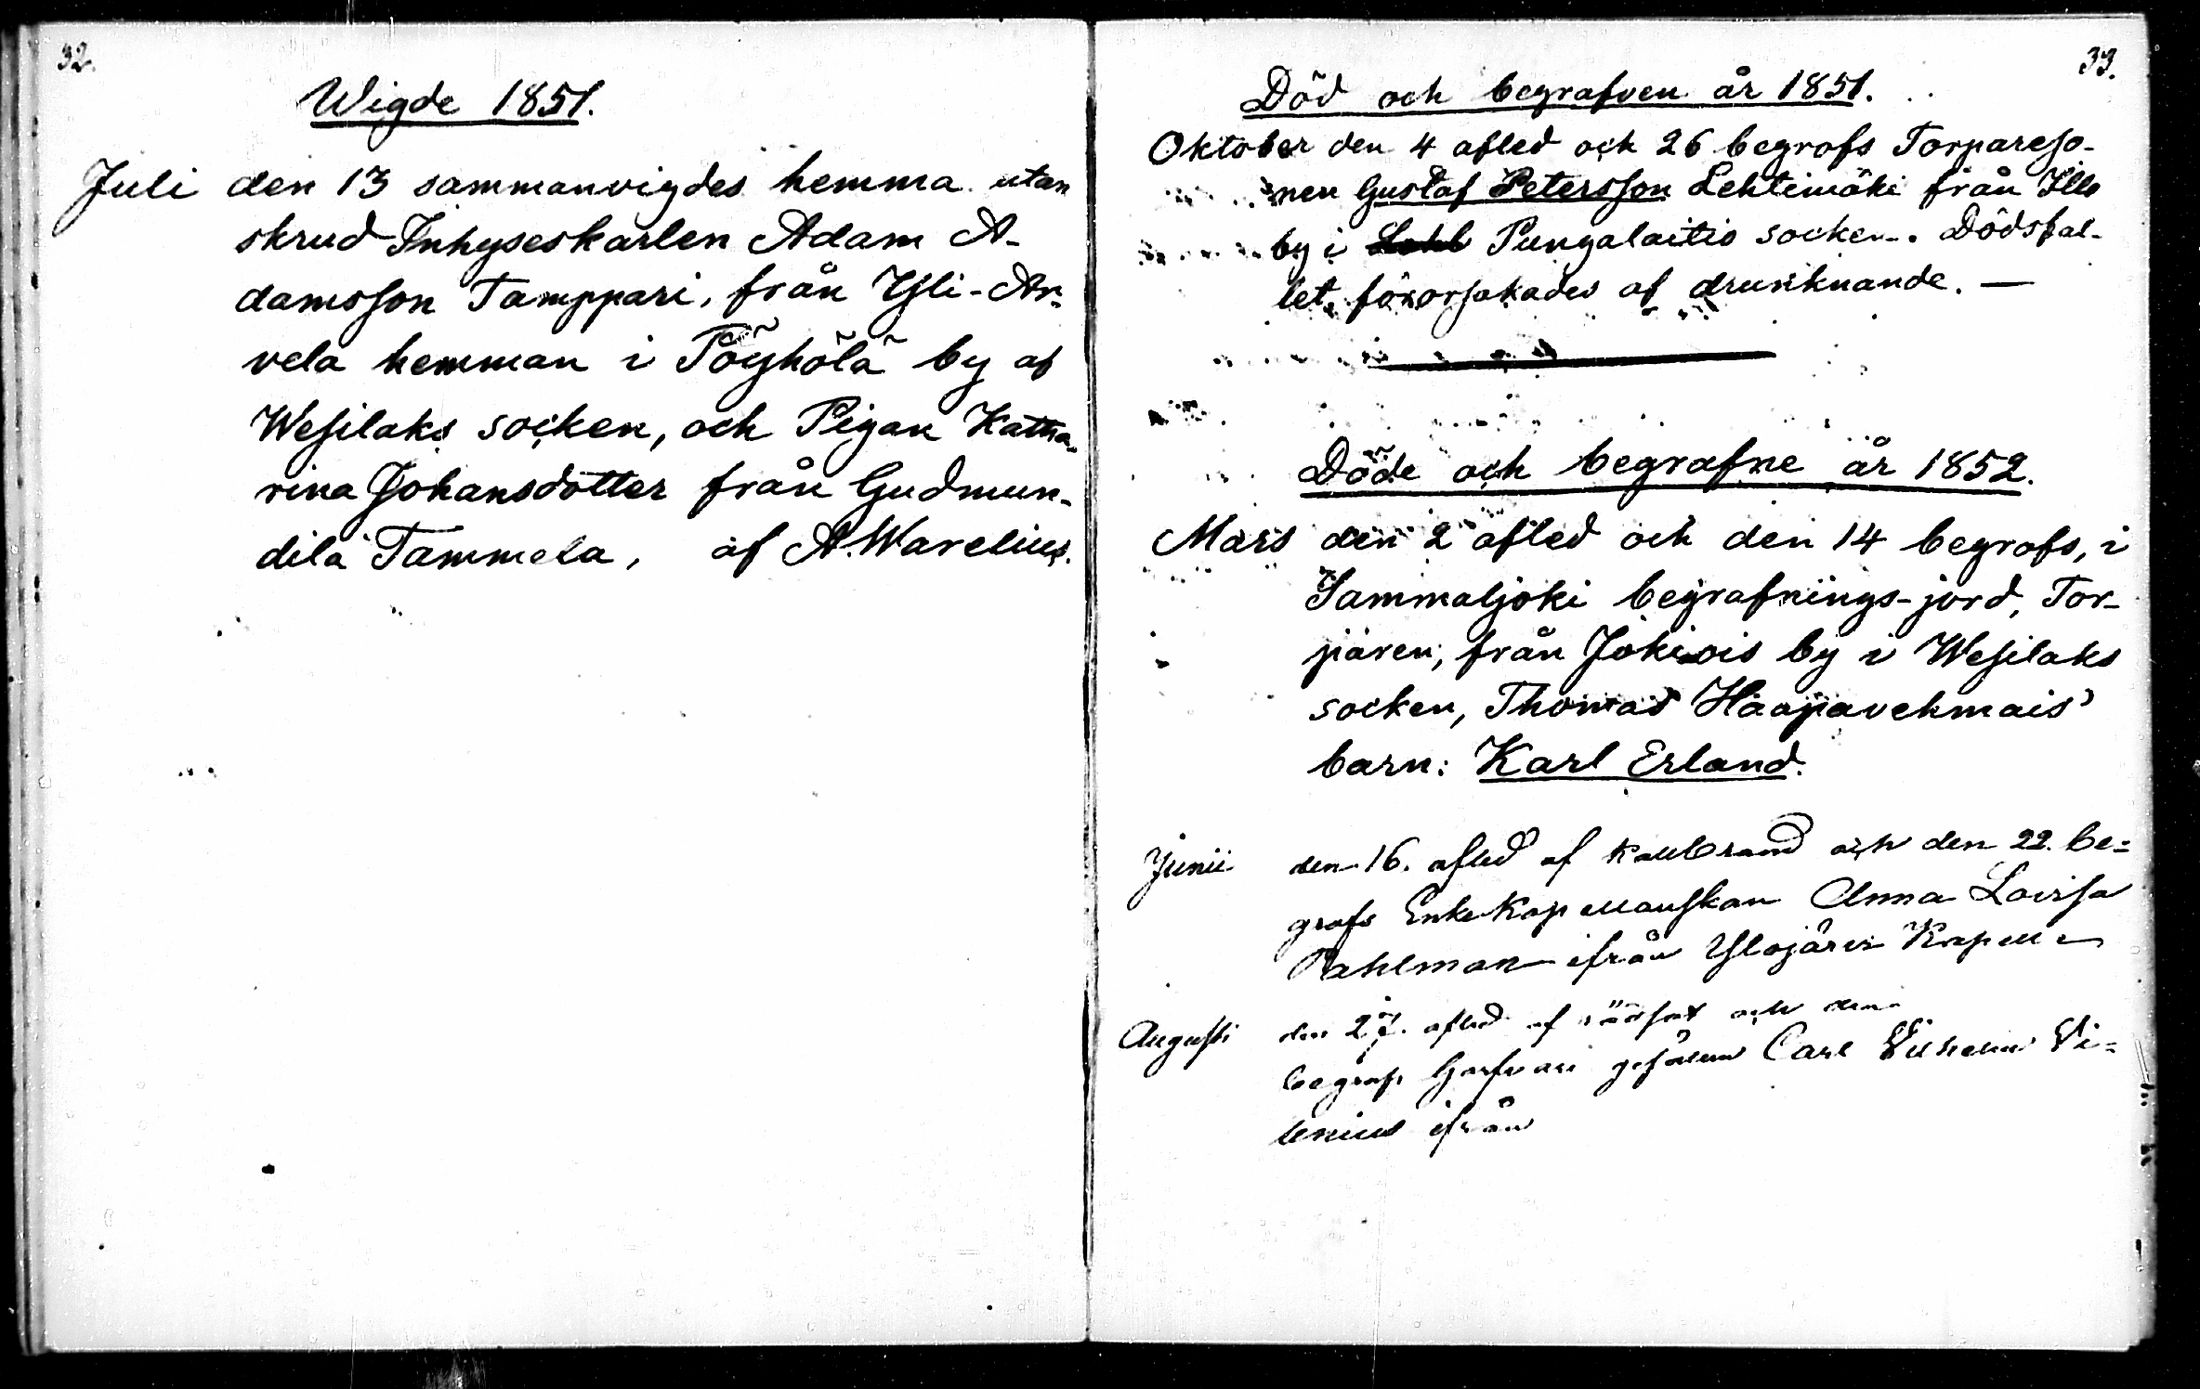 32.
Wigde 1851.
Juli den 13 sammanvigdes hemma utan
skrud Inhyseskarlen Adam A-
damsson Tamppari, från Yli-Ar-
vela hemman i Pöyhölä by af
Wesilaks socken, och Pigan Katha-
rina Johansdotter från Gudmun-
dila Tammela, af A. Warelius.
33.
Död och begrafven år 1851.
Oktober den 4 afled och 26 begrofs Torpareso-
nen Gustaf Petersson Lehtimäki från Illo
by i Pungalaitio socken. Dödsfal-
let förorsakades af drunknande. —
Döde och begrafne år 1852.
Mars den 2 afled och den 14 begrofs, i
Sammaljoki begrafnings-jord, Tor-
paren, från Jokiois by i Wesilaks
socken, Thomas Haapavehmais'
barn: Karl Erland.
Junii den 16. afled af kallbrand och den 22. be=
grofs Enkekapellanskan Anna Lovisa
Pahlman ifrån Ylöjärvi Kapell
Augusti den 27. afled af rödsot och den
begrofs Garfvari gesällen Carl Vilhelm Vi=
lenius ifrån